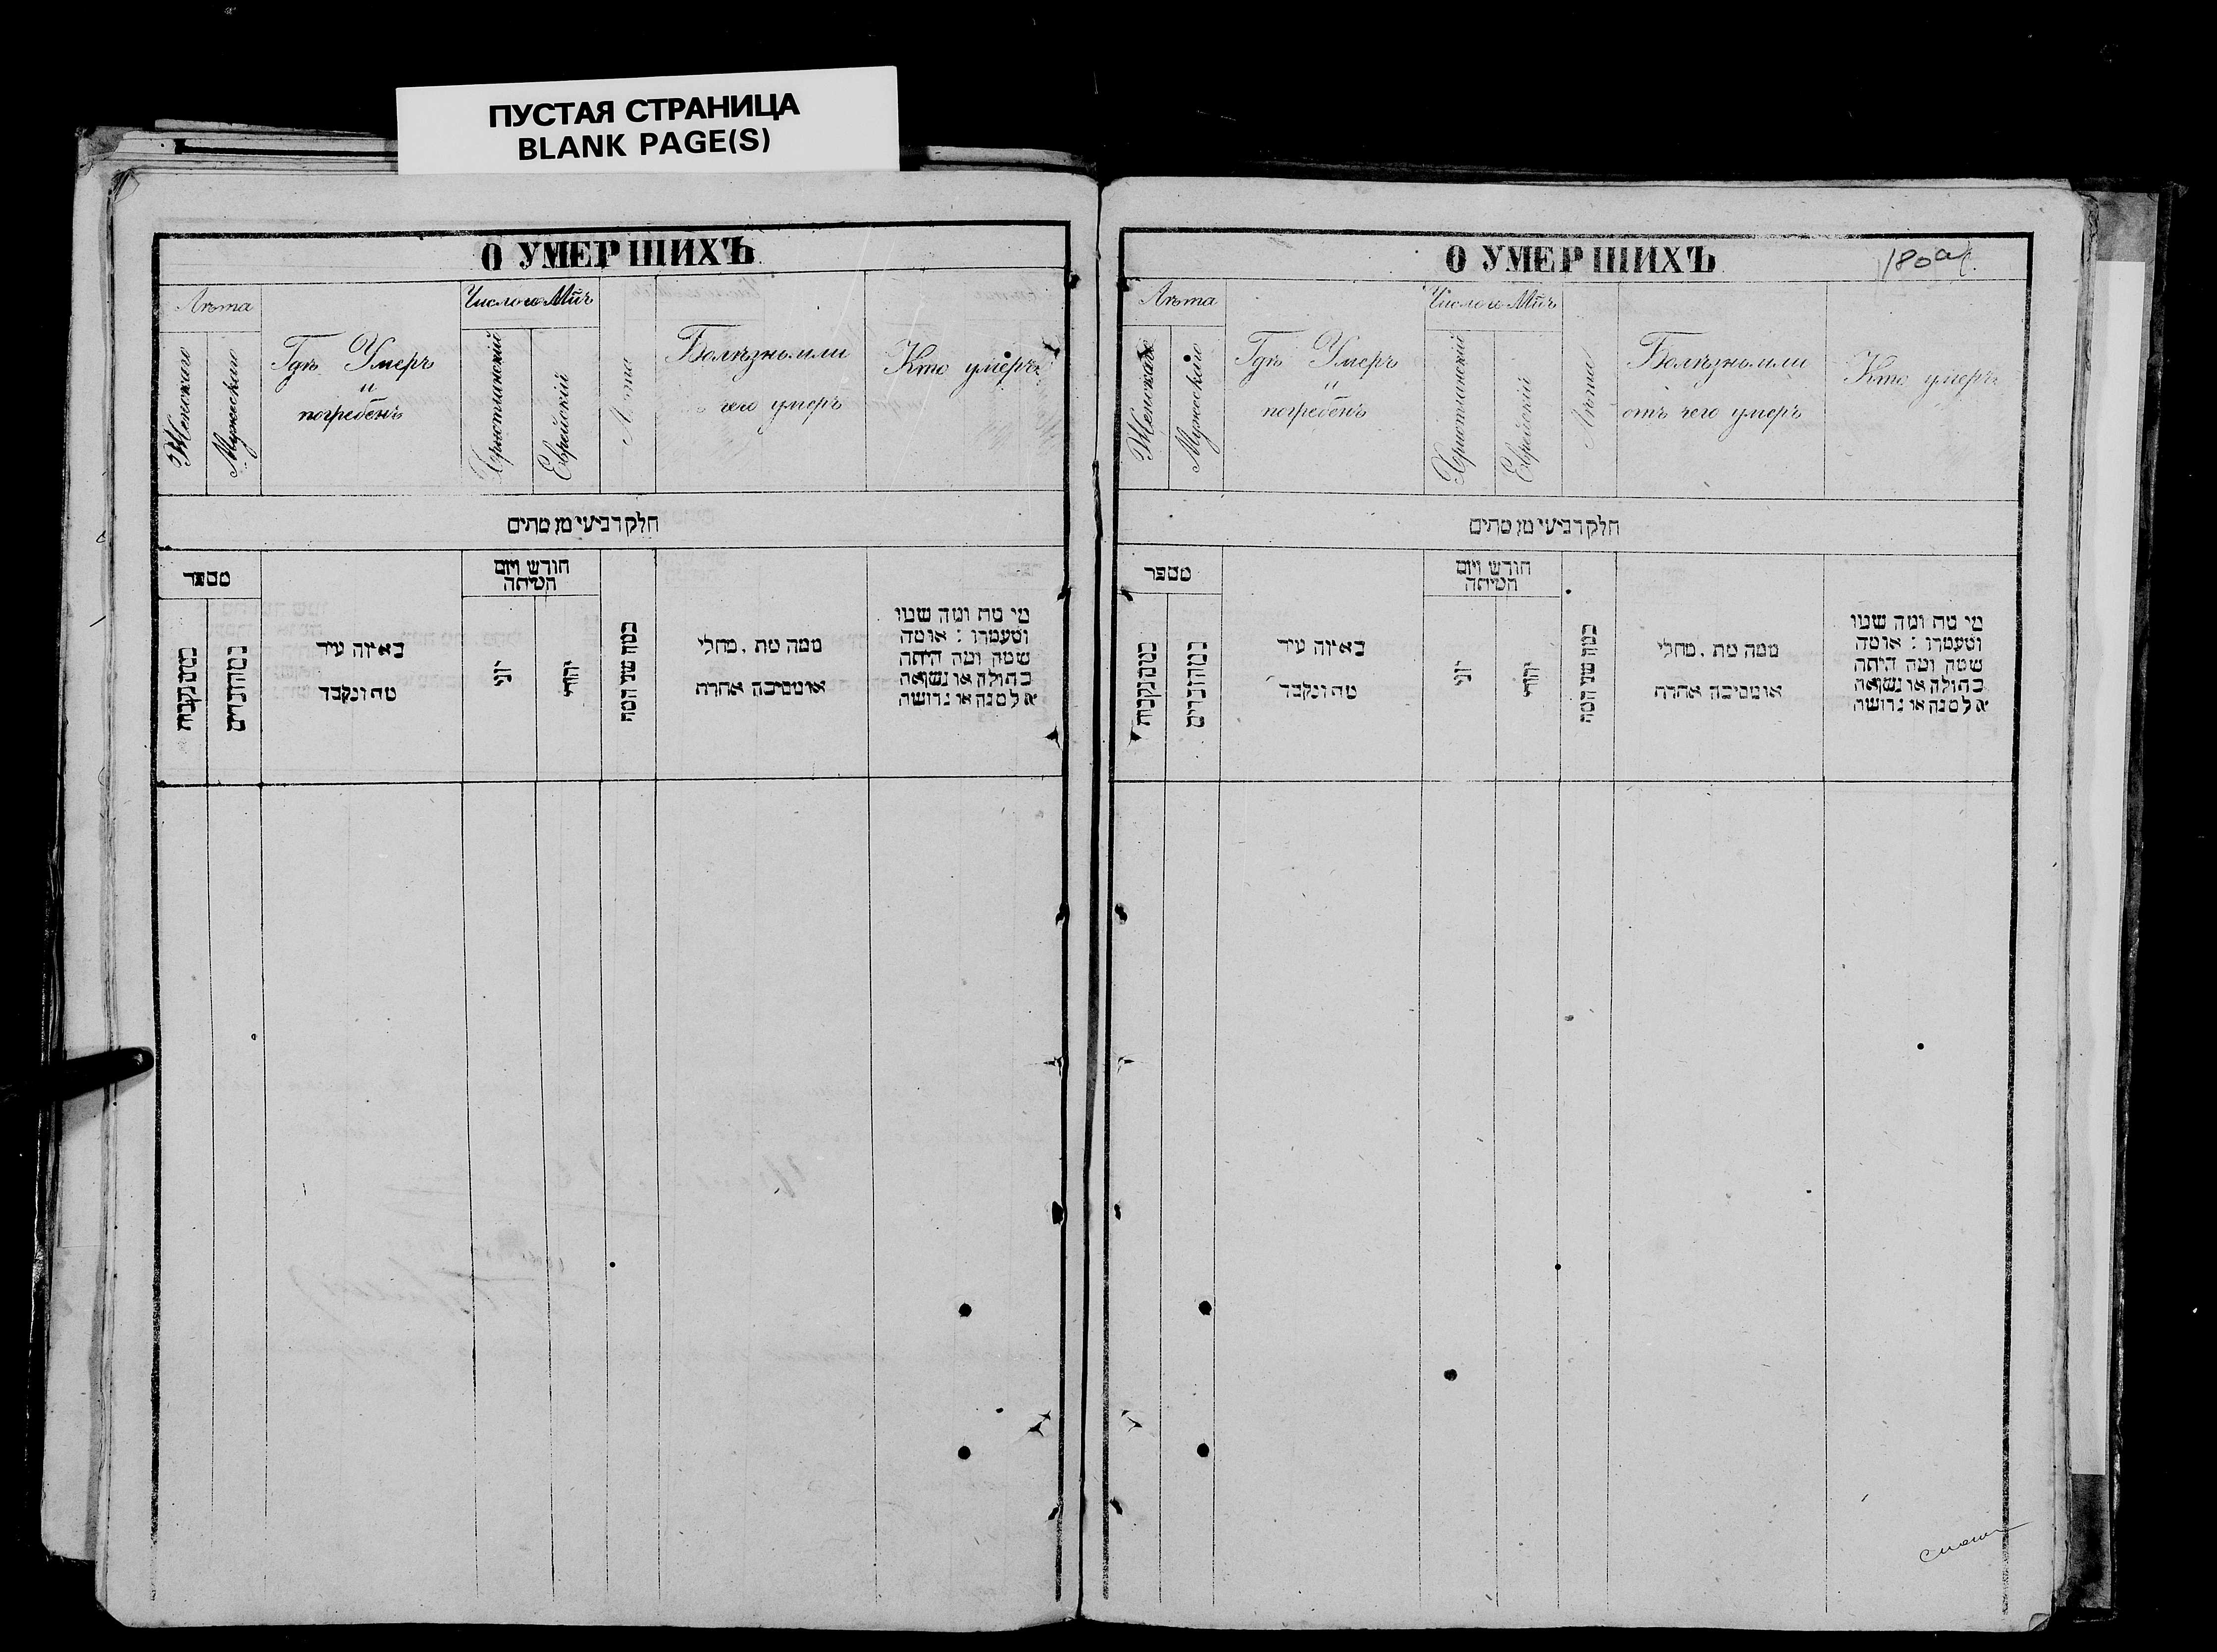 ПУСТАЯ СТРАНИЦА
BLANK PAGE(S)
О УМЕРШИХЪ
Лѣта
Женскаго
Мужескаго
Гдѣ Умеръ
и
погребенъ
Число и Мцъ
Христіянскій
Еврейскій
Лѣта
Болѣзнь или
чего умеръ
Кто умеръ
חלק רביעי מן מתים
מספר
כמס נקבות
כמה זכרים
באיזה עיר
מת ונקבר
חודש ויום
המיתה
יוני
יהודי
כמה שני המת
ממה מת . מחלי
או מסיבה אחרת
מי מת ומה שמו
ומעמדו : או מה
שמה ומה היתה
בתולה או נשואה
אלמנה או גרושה
О УМЕРШИХЪ
180 а
Лѣта
Женскаго
Мужескаго
Гдѣ Умеръ
и
погребенъ
Число и Мцъ
Христіянскій
Еврейскій
Лѣта
Болѣзнь или
отъ чего умеръ
Кто умеръ
חלק רביעי מן מתים
מספר
כמס נקבות
כמה זכרים
באיזה עיר
מת ונקבר
חודש ויום
המיתה
יוני
יהודי
כמה שני המת
ממה מת . מחלי
או מסיבה אחרת
מי מת ומה שמו
ומעמדו : או מה
שמה ומה היתה
בתולה או נשואה
אלמנה או גרושה